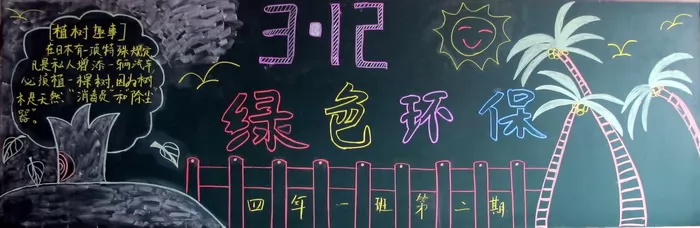 [植树趣事]
在日本有一项特殊规定
凡是私人增添一辆汽车
必须植一棵树,因为树
木是天然“消音员”和“除尘
器”。
3·12
绿色环保
四年一班第二期